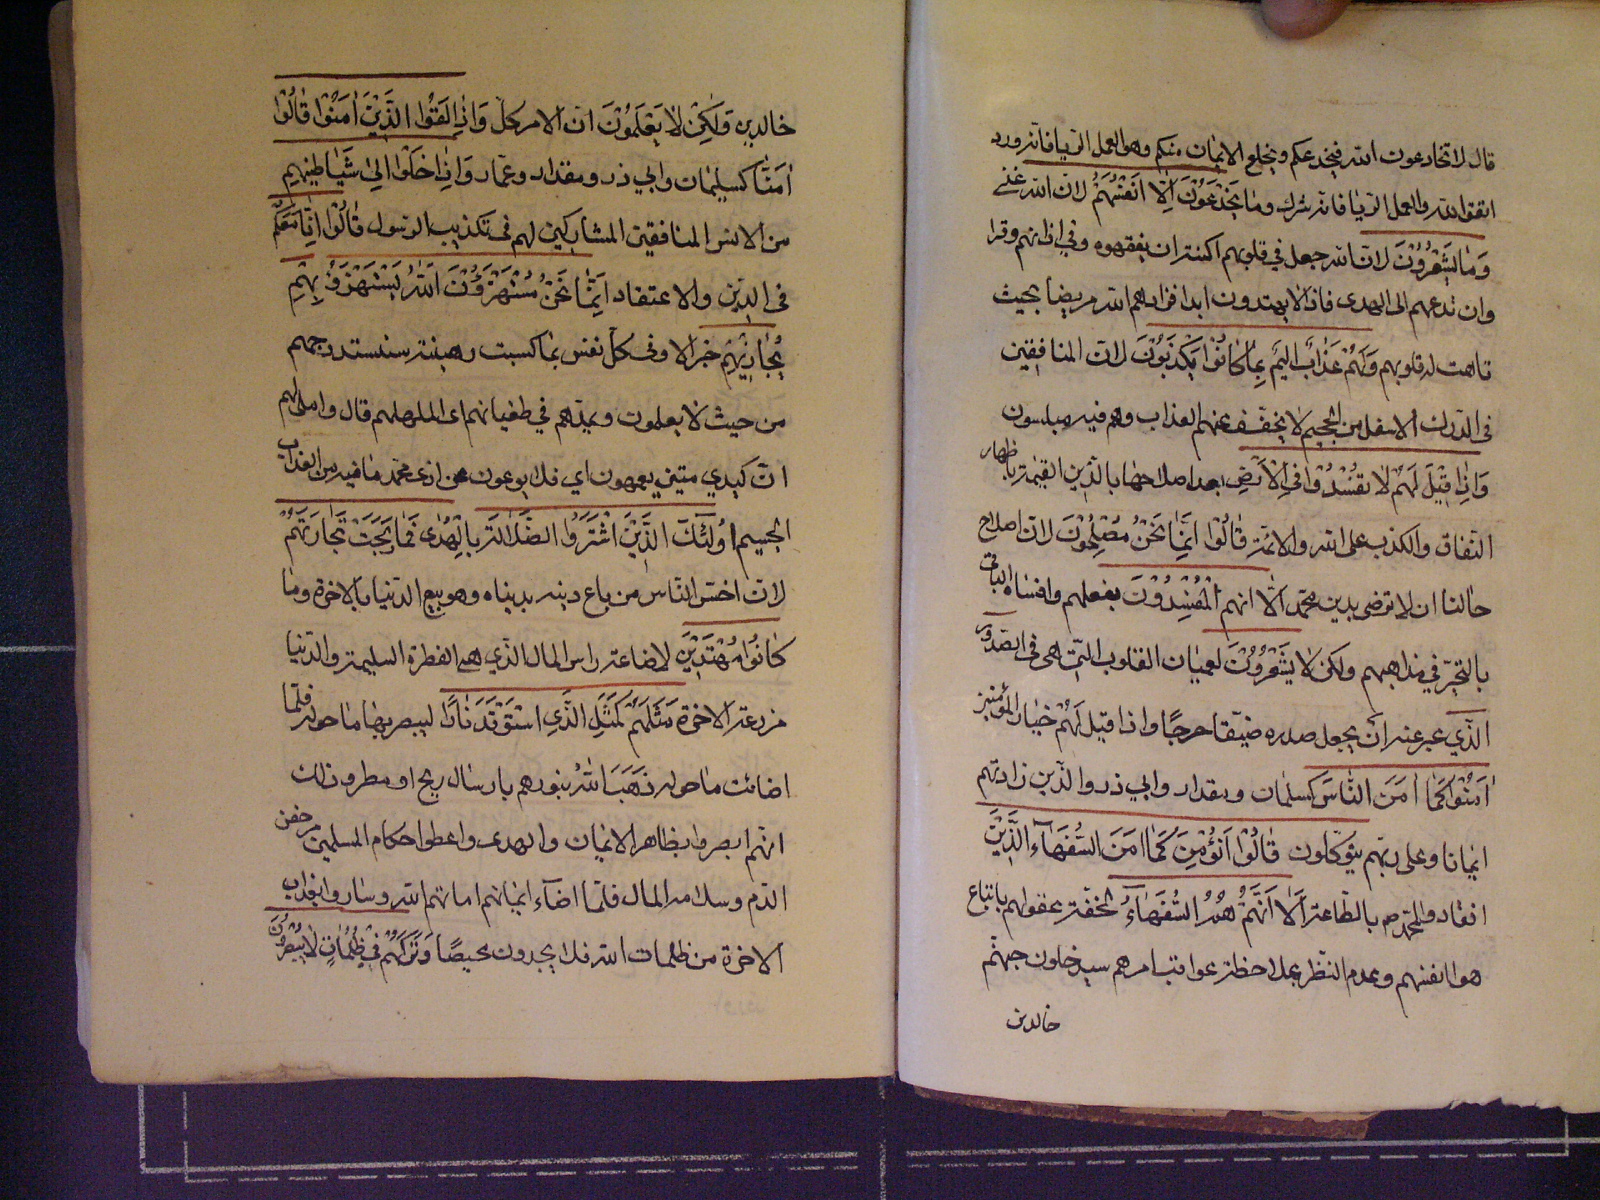 قال لا تخادعون الله فيخدعكم ويخلع الايمان منكم وهو العمل الريا فانه ورد
اتقوا الله والعمل الريا فانه شرك وما يخدعون الا انفسهم لان الله غني
وما يشعرون لان الله جعل في قلوبهم اكنة ان يفقهوه وفي اذانهم وقرا
وان تدعهم الى الهدى فاذا لا يهتدون ابدا فزادهم الله مرضا بحيث
تاهت له قلوبهم ولهم عذاب اليم بما كانوا يكذبون لان المنافقين
في الدرك الاسفل من الجحيم لا يخفف عنهم العذاب وهم فيه مبلسون
وَاِذا قِيْلَ لَهُمْ لا تفسدوا في الارض بعد اصلاحها بالدين القيمة باظهار
النفاق والكذب على الله والائمة قالوا انما نحن مصلحون لان اصلاح
حالنا ان لا نرضى بدين محمد الا انهم المفسدون بفعلهم وافشاء
في مذاهبهم ولكن لا يشعرون لعميان القلوب التي هي في الصدور
الذي عبر عنه ان يجعل صدره ضيقا حرجا واذا قيل لهم خيار المؤمنين
امنوا كما امن الناس كسلمان ومقداد وابي ذر والذين زادتهم
ايمانا وعلى ربهم يتوكلون قالوا انؤمن كما امن السفهاء الذين
انقادوا لمحمد ص بالطاعة الا انهم هم السفهاء لخفة عقولهم باتباع
هوا انفسهم وعدم النظر بملاحظة عواقب امرهم سيدخلون جهنم
خالدين
خالدين ولكن لا يعلمون ان الامر كل واذا لقوا الذين امنوا قالوا
امنا كسليمان وابي ذر ومقداد وعمار واذا خلوا الى شياطينهم
من الانس المنافقين المشاركين لهم في تكذيب الرسول قالوا انا معكم
في الدين والاعتقاد انما نحن مستهزؤن الله يستهزؤ بهم
يجازيهم جزاء الاوفى كل نفس بما كسبت رهينة سنستدرجهم
من حيث لا يعلمون ويمدهم في طغيانهم اى املى لهم قال واملى لهم
ان كيدي متين يعمهون اي فلا يرعون عن اذى محمد ما فيه من العذاب
الجسيم اولئك الذين اشتروا الضلالة بالهدى فما ربحت تجارتهم
لان اخس الناس من باع دينه بدنياه وهو بيع الدنيا بالاخرة وما
كانوا مهتدين لاضاعة راس المال الذي هي الفطرة السليمة والدنيا
مزرعة الاخرة مثلهم كمثل الذي استوقد نارا ليبصر بها ما حوله فلما
اضائت ما حوله ذهب الله بنورهم بارسال ريح او مطر وذلك
انهم ابصروا بظاهر الايمان والهدى واعطوا احكام المسلمين من حقن
الدم وسلامة المال فلما اضاء ايمانهم اماتهم الله وصاروا بعذاب
الاخرة من ظلمات الله فلا يجدون محيصا وتركهم في ظلمات لا يبصرون